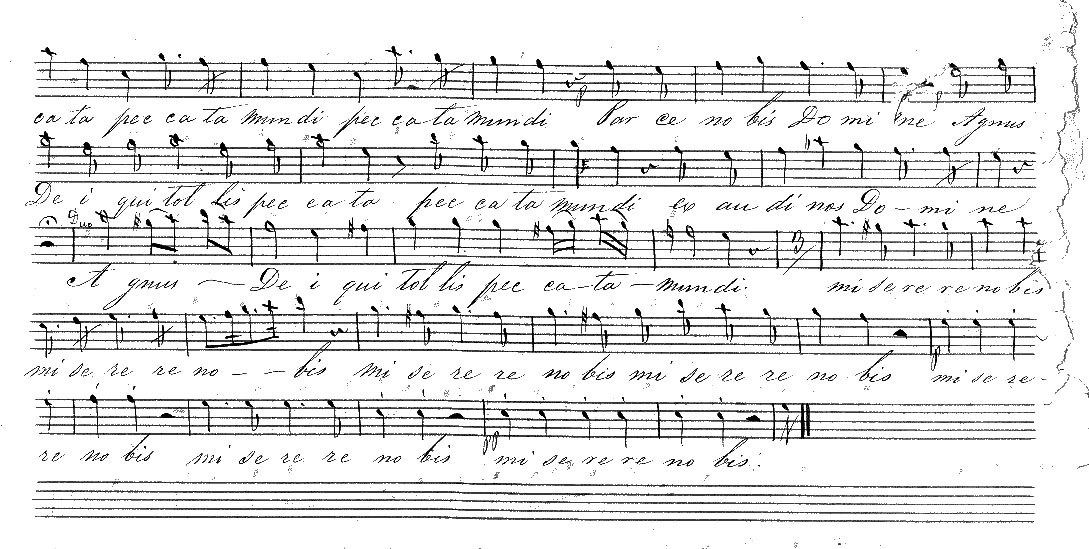 ca ta pec ca ta mundi pec ca ta mundi Par ce no bis Do mi ne Agnus
De i qui tol lis pec ca ta pec ca ta mundi ex au di nos Do - mi ne
Duo
A gnus De i qui tol lis pec ca - ta - mundi. mi se re re no bis
3
mi se re re no - - bis mi se re re no bis mi se re re no bis mi se re -
p
re no bis mi se re re no bis mi se re re no bis.
pp